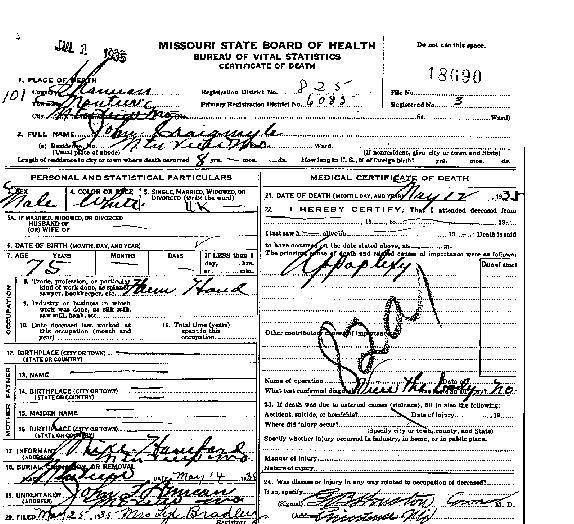 JAN 1 1935
MISSOURI STATE BOARD OF HEALTH
BUREAU OF VITAL STATISTICS
CERTIFICATE OF DEATH
Do not use this space.
18690
1. PLACE OF DEATH
101
Registration District No. 825
File No.
Primary Registration District No. 6083
Registered No. 3
City
St.
Ward)
2. FULL NAME John
(a) Residence, No.
Ward.
(Usual place of abode)
(If nonresident, give city or town and State)
Length of residence in city or town where death occurred 8 yrs. mos. ds. How long in U. S., if of foreign birth? yrs. mos. ds.
PERSONAL AND STATISTICAL PARTICULARS
3. SEX
Male
4. COLOR OR RACE
White
5. SINGLE, MARRIED, WIDOWED, OR DIVORCED (Write the word)
UK
5A. IF MARRIED, WIDOWED, OR DIVORCED
HUSBAND OF
(OR) WIFE OF
6. DATE OF BIRTH (MONTH, DAY, AND YEAR)
7. AGE YEARS MONTHS DAYS If LESS than 1 day, hrs. or min.
75
OCCUPATION
8. Trade, profession, or particular kind of work done, as spinner, sawyer, bookkeeper, etc. Hand
9. Industry or business in which work was done, as silk mill, saw mill, bank, etc.
10. Date deceased last worked at this occupation (month and year)
11. Total time (years) spent in this occupation
12. BIRTHPLACE (CITY OR TOWN)
(STATE OR COUNTRY)
FATHER
13. NAME
14. BIRTHPLACE (CITY OR TOWN)
(STATE OR COUNTRY)
MOTHER
15. MAIDEN NAME
16. BIRTHPLACE (CITY OR TOWN)
(STATE OR COUNTRY)
17. INFORMANT
(ADDRESS)
18. BURIAL, CREMATION, OR REMOVAL
DATE May 14 1935
19. UNDERTAKER
(ADDRESS)
20. FILED May 25, 35 Bradley
Registrar
MEDICAL CERTIFICATE OF DEATH
21. DATE OF DEATH (MONTH, DAY, AND YEAR) May 12 1935
22. I HEREBY CERTIFY, That I attended deceased from
, 19 , to , 19
I last saw h alive on , 19 Death is said
to have occurred on the date stated above, at m.
The principal cause of death and related causes of importance were as follows:
Date of onset
Appoplexy
82a
Other contributory causes of importance:
Name of operation Date of
What test confirmed diagnosis? the body no
23. If death was due to external causes (violence), fill in also the following:
Accident, suicide, or homicide? Date of injury , 19
Where did injury occur?
(Specify city or town, county, and State)
Specify whether injury occurred in industry, in home, or in public place.
Manner of injury
Nature of injury
24. Was disease or injury in any way related to occupation of deceased?
If so, specify
(Signed) M. D.
(Address)